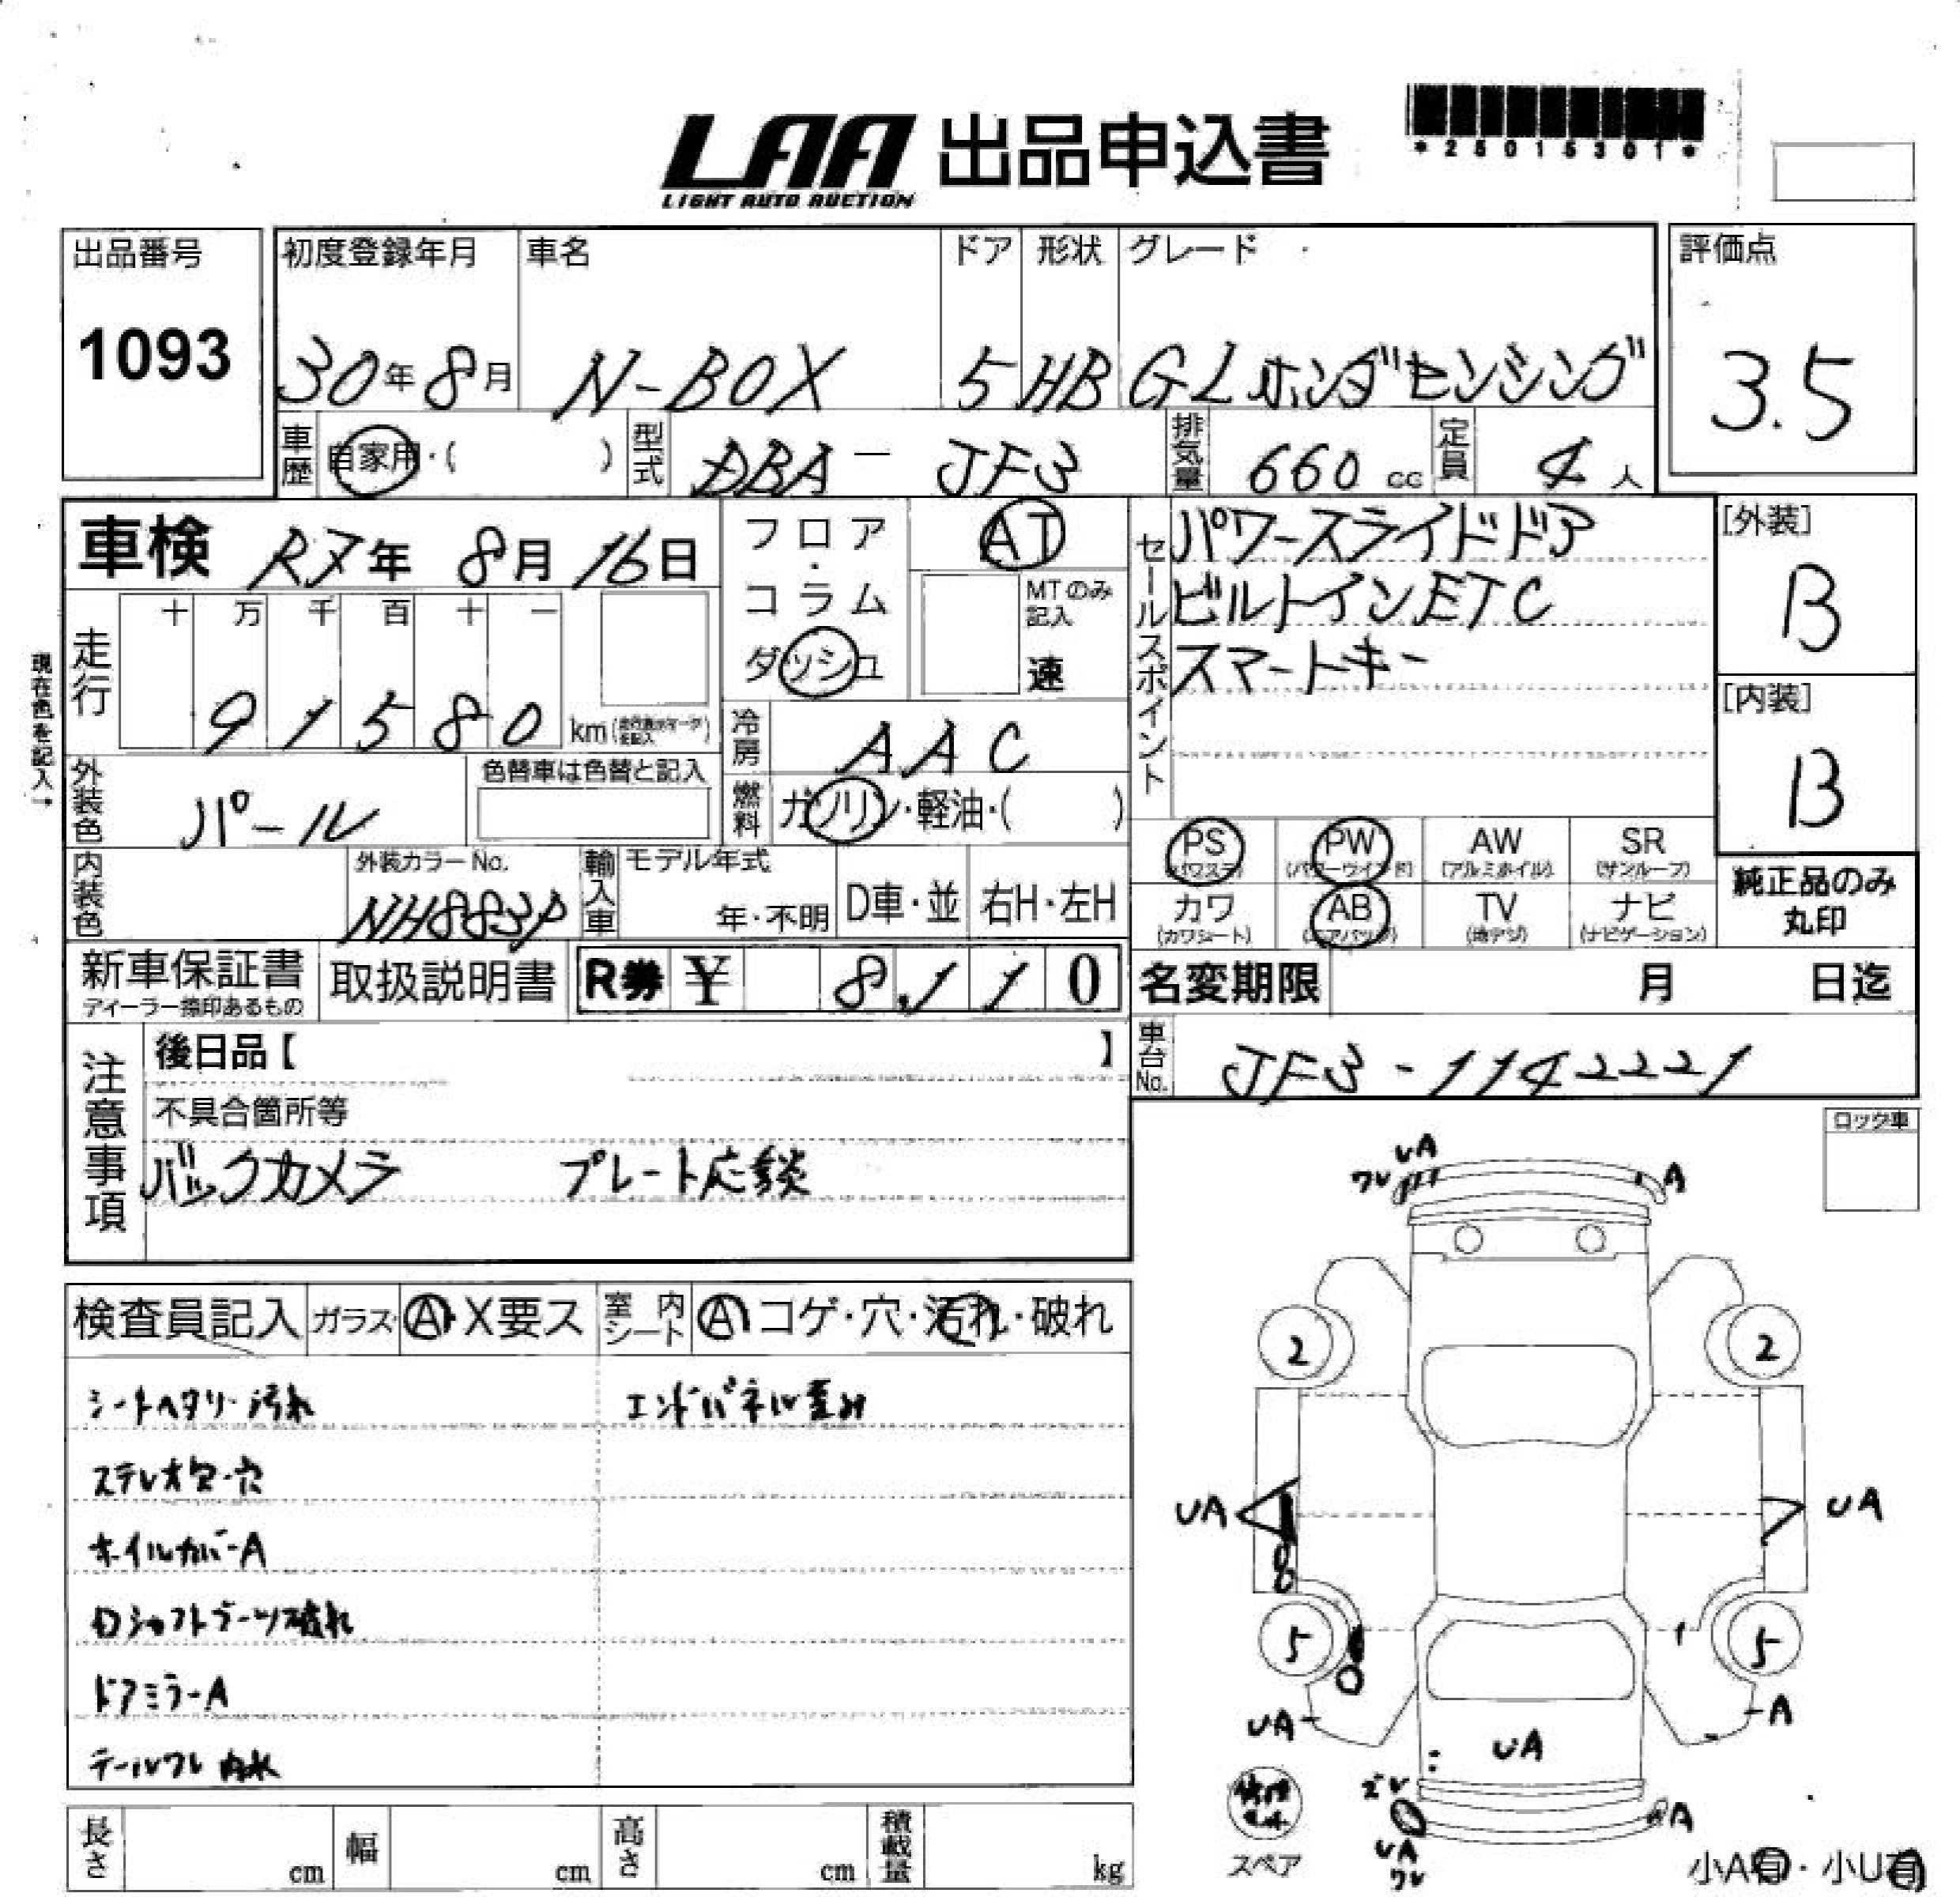 LAA 出品申込書
LIGHT AUTO AUCTION
*25015301*
出品番号
1093
初度登録年月
30年8月
車名
N-BOX
ドア
5
形状
HB
グレード
GLホンダセンシング
評価点
3.5
車歴
自家用・( )
型式
DBA-JF3
排気量
660 cc
定員
4人
車検 R7年 8月 16日
走行
十 万 千 百 十 一
9 1 5 8 0 km
現在色を記入→
外装色
パール
色替車は色替と記入
内装色
外装カラーNo.
NH883P
フロア・コラム
ダッシュ
AT
MTのみ記入
速
冷房
AAC
燃料
ガソリン・軽油・( )
輸入車
モデル年式
年・不明
D車・並
右H・左H
セールスポイント
パワースライドドア
ビルトインETC
スマートキー
[外装]
B
[内装]
B
PS
(パワステ)
PW
(パワーウインド)
AW
(アルミホイル)
SR
(サンルーフ)
カワ
(カワシート)
AB
(エアバッグ)
TV
(地デジ)
ナビ
(ナビゲーション)
純正品のみ
丸印
新車保証書
ディーラー捺印あるもの
取扱説明書
R券 ¥ 8,110
名変期限 月 日迄
車台No.
JF3-1142221
注意事項
後日品【 】
不具合箇所等
バックカメラ プレート応談
ロック車
検査員記入
ガラス A・X要ス
室内シート A コゲ・穴・汚れ・破れ
シートヘタリ・汚れ
エンドパネル歪み
ステレオ欠・穴
ホイルカバーA
Dシャフトブーツ破れ
ドアミラーA
テールワレ 内水
UA
ワレ
A
2
2
UA
UA
5
5
UA
A
UA
ズレ
UA
ワレ
A
修理キット
スペア
小A有・小U有
長さ cm
幅 cm
高さ cm
積載量 kg